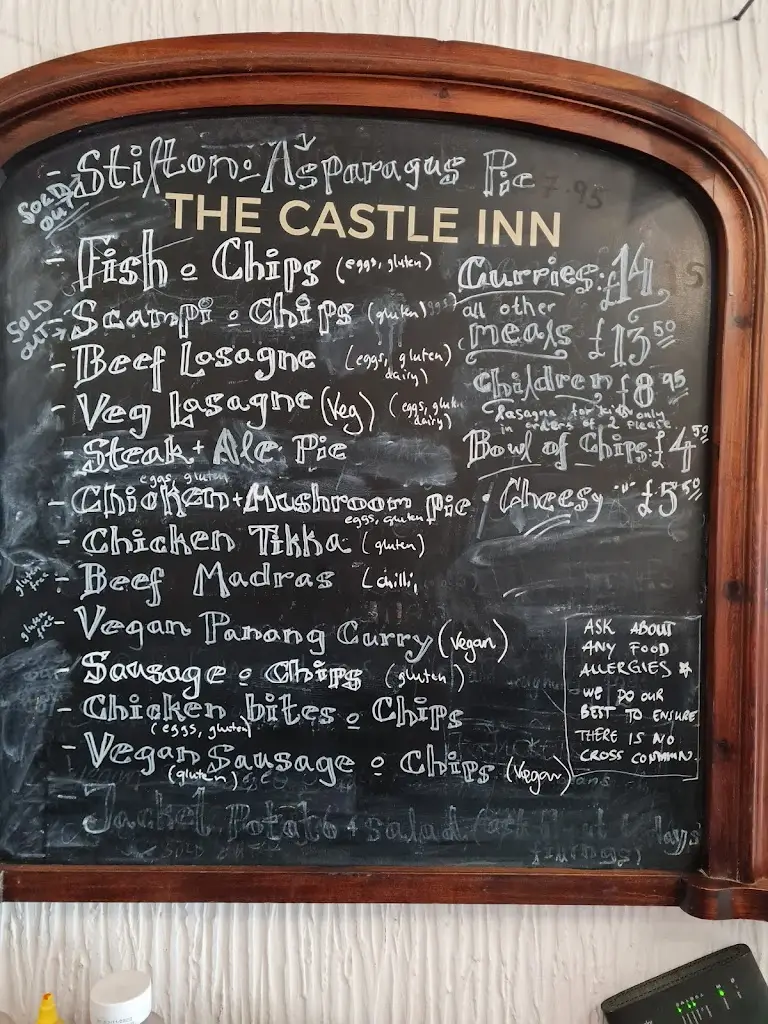 - Stilton & Asparagus Pie 7.95
SOLD OUT
THE CASTLE INN
- Fish & Chips (eggs, gluten)
SOLD OUT
- Scampi & Chips (gluten) eggs)
- Beef Lasagne (eggs, gluten)
dairy)
- Veg Lasagne (Veg) (eggs,
dairy)
- Steak + Ale Pie
eggs, gluten
- Chicken + Mushroom Pie
eggs, gluten
- Chicken Tikka (gluten)
gluten free
- Beef Madras (chilli,
gluten free
- Vegan Panang Curry (Vegan)
- Sausage & Chips (gluten)
- Chicken bites & Chips
(eggs, gluten)
- Vegan Sausage & Chips (Vegan)
(gluten)
Jacket Potato + salad
fillings)
Curries: £14
all other
meals £13.50
Children £8.95
lasagne for kids only
in orders of 2 please
Bowl of Chips: £4.50
• Cheesy " " £5.50
ASK ABOUT
ANY FOOD
ALLERGIES *
WE DO OUR
BEST TO ENSURE
THERE IS NO
CROSS CONTAMN.